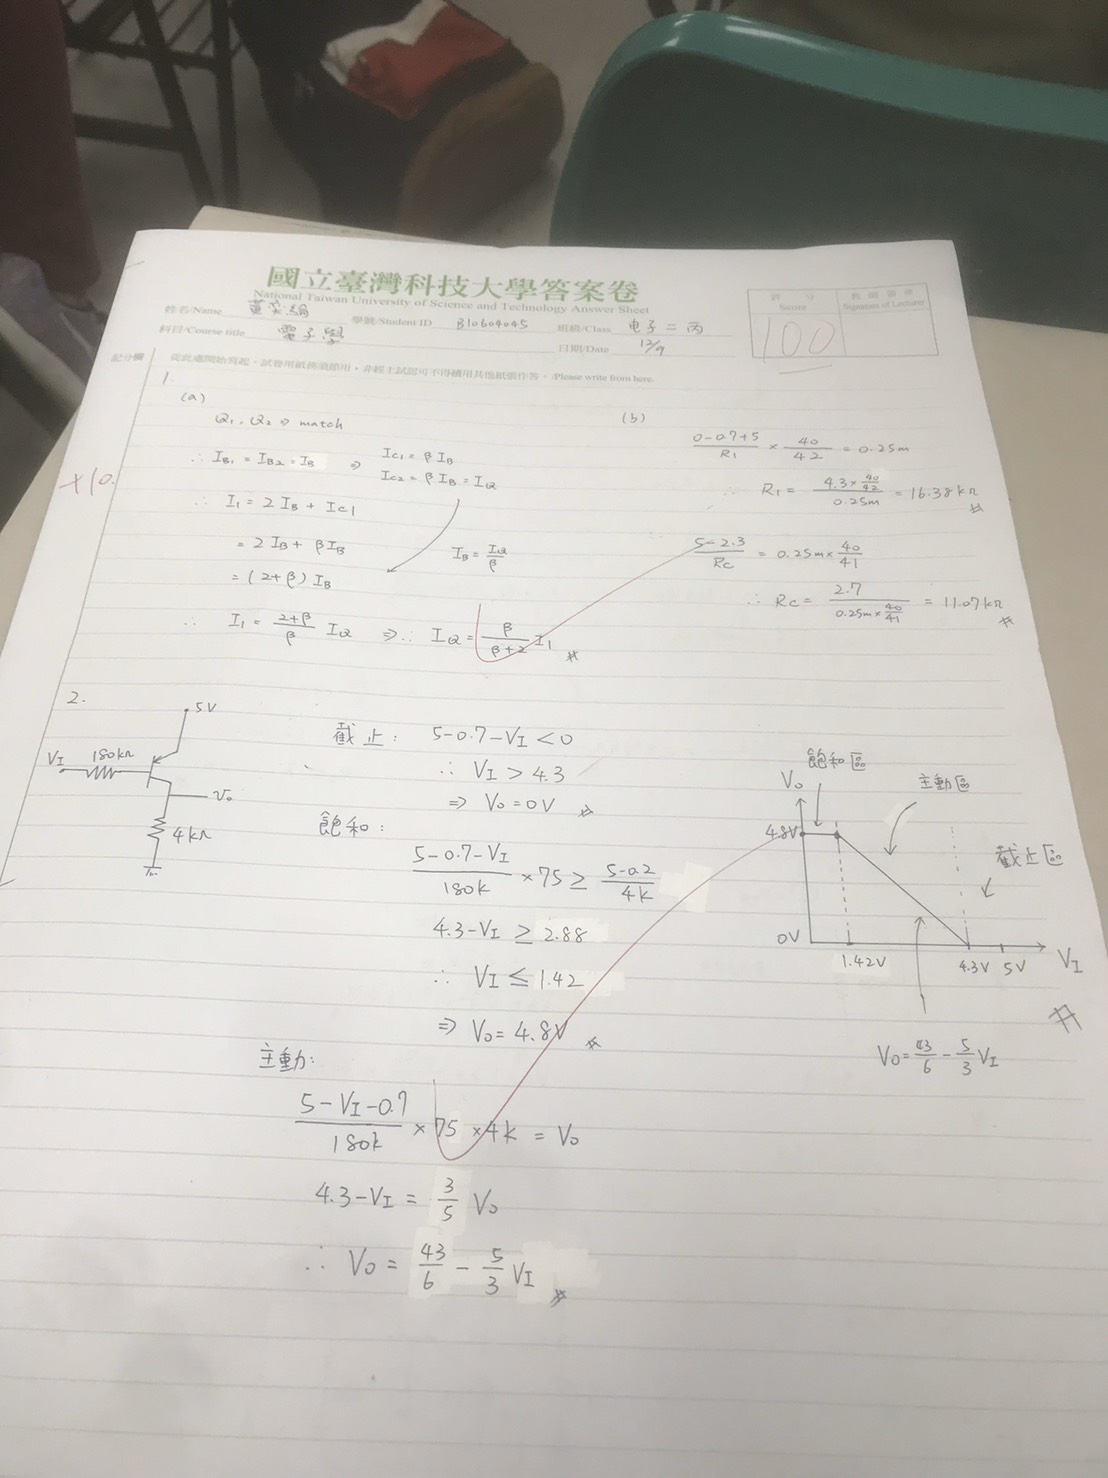 國立臺灣科技大學答案卷
National Taiwan University of Science and Technology Answer Sheet
姓名/Name
學號/Student ID B10604045
班級/Class 电子二丙
科目/Course title 電子學
日期/Date 12/9
評分
Score
100
Signature of Lecturer
記分欄
從此處開始寫起,試卷用紙務須節用,非經主試認可不得續用其他紙張作答。/Please write from here.
1.
(a)
Q1, Q2 ⇒ match
∴ IB1 = IB2 = IB ⇒ Ic1 = βIB
Ic2 = βIB = IQ
∴ I1 = 2IB + Ic1
= 2IB + βIB
IB = IQ/β
= (2+β) IB
∴ I1 = (2+β)/β IQ ⇒ ∴ IQ = β/(β+2) I1
(b)
(0-0.7+5)/R1 × 40/42 = 0.25m
∴ R1 = (4.3 × 40/42)/0.25m = 16.38kΩ
(5-2.3)/Rc = 0.25m × 40/41
∴ Rc = 2.7/(0.25m × 40/41) = 11.07kΩ
×10.
2.
5V
VI 180kΩ
Vo
4kΩ
截止: 5-0.7-VI < 0
∴ VI > 4.3
⇒ Vo = 0V
飽和:
(5-0.7-VI)/180k × 75 ≥ (5-0.2)/4k
4.3-VI ≥ 2.88
∴ VI ≤ 1.42
⇒ Vo = 4.8V
主動:
(5-VI-0.7)/180k × 75 × 4k = Vo
4.3-VI = 3/5 Vo
∴ Vo = 43/6 - 5/3 VI
飽和區
Vo
主動區
4.8V
截止區
0V
1.42V
4.3V
5V
VI
Vo = 43/6 - 5/3 VI